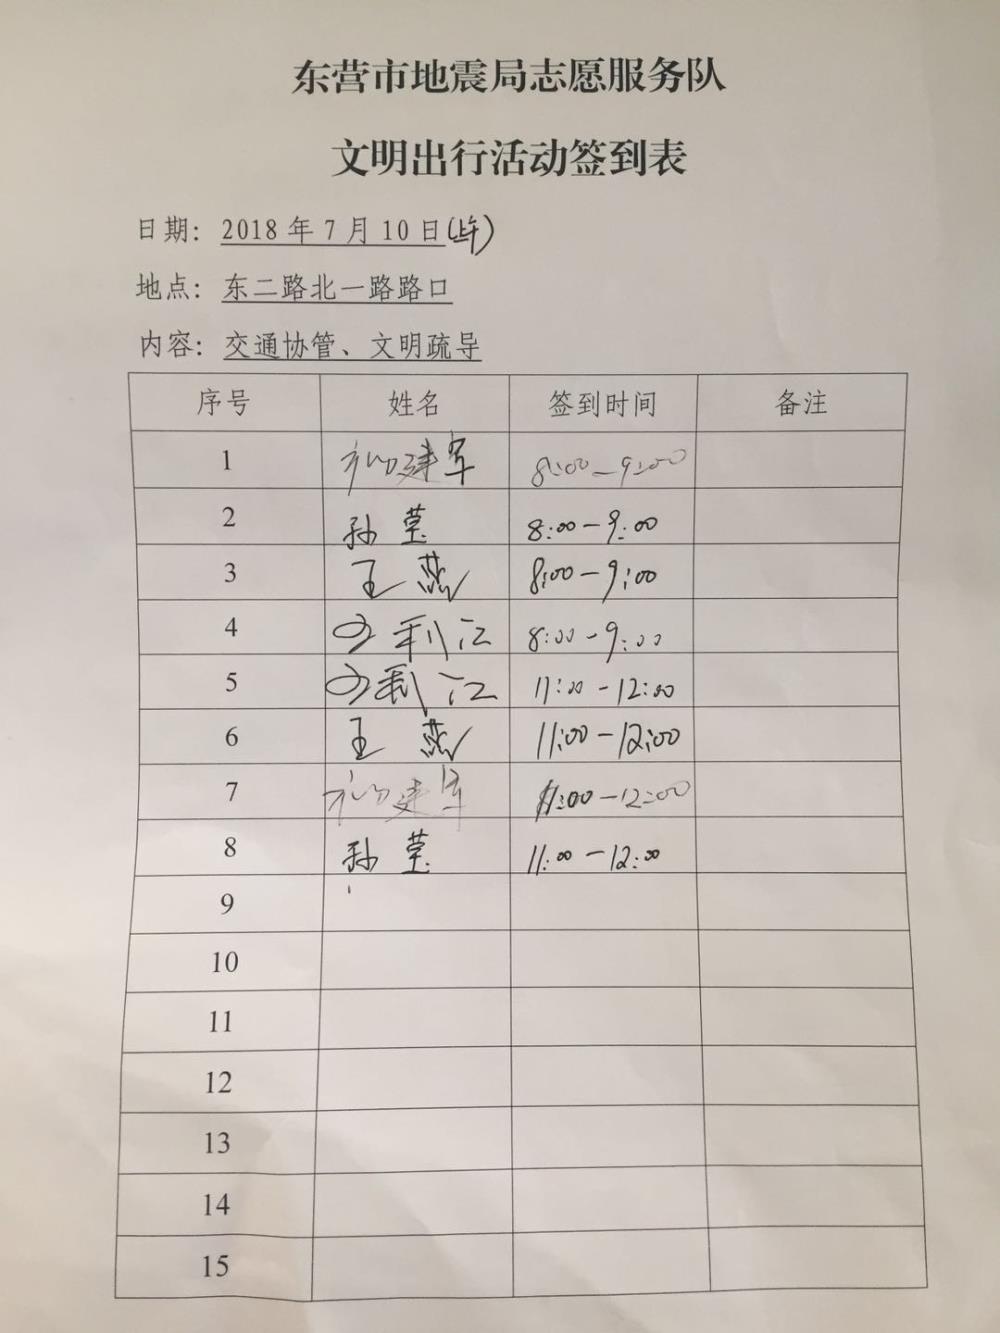 东营市地震局志愿服务队
文明出行活动签到表
日期：2018年7月10日(上午)
地点：东二路北一路路口
内容：交通协管、文明疏导
序号 姓名 签到时间 备注
1 建军 8:00-9:00
2 孙莹 8:00-9:00
3 王燕 8:00-9:00
4 利江 8:00-9:00
5 利江 11:00-12:00
6 王燕 11:00-12:00
7 建军 11:00-12:00
8 孙莹 11:00-12:00
9
10
11
12
13
14
15